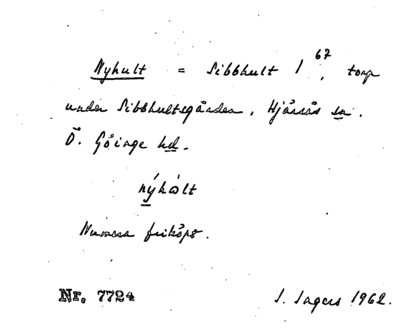 Nyhult = Sibbhult 1 67, torp
under Sibbhultsgården, Hjärsås sn.
Ö. Göinge hd.
nýhὼlt
Numera friköpt.
Nr. 7724 S. Ingers 1962.